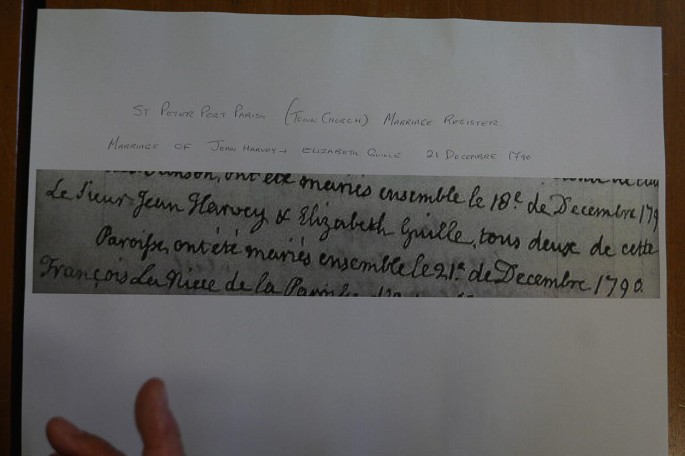 St Peter Port Parish (Town Church) Marriage Register
Marriage of Jean Harvey + Elizabeth Guille 21 Decembre 1790
ont été mariés ensemble le 18e. de Decembre 179
Le Sieur Jean Harvey & Elizabeth Guille, tous deux de cette
Paroisse, ont été mariés ensemble le 21e. de Decembre 1790.
François de la